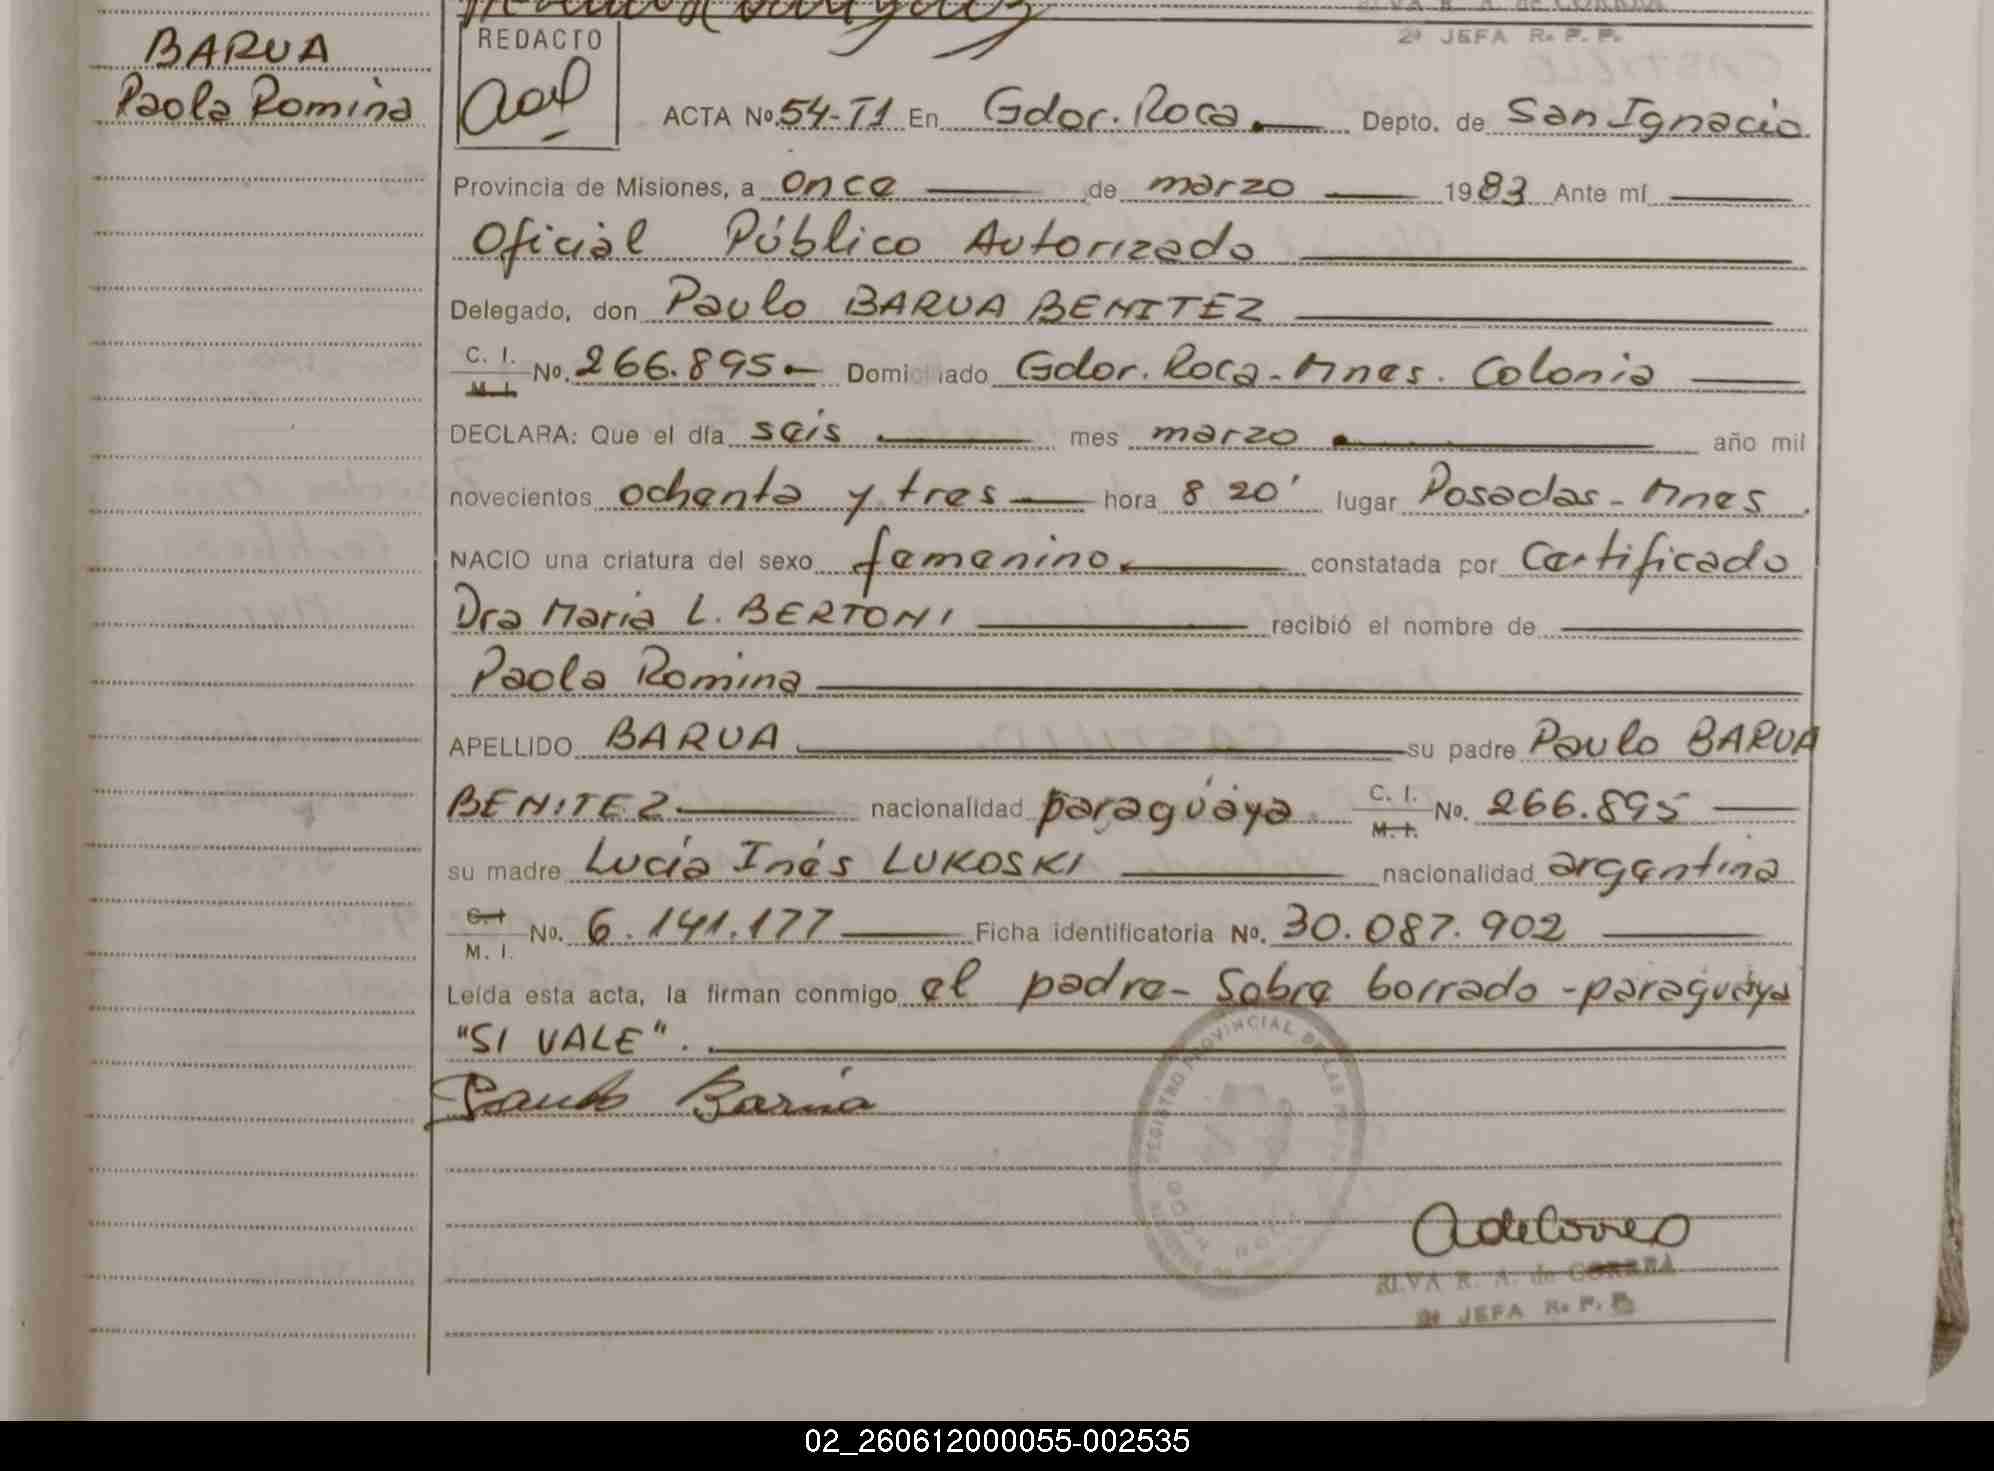 2ª JEFA R. P. P.
BARUA
Paola Romina
REDACTO
ACTA Nº. 54-T1 En Gdor. Roca. Depto. de San Ignacio
Provincia de Misiones, a once de marzo 1983 Ante mí
Oficial Público Autorizado
Delegado, don Paulo BARUA BENITEZ
C. I. M. I. Nº. 266.895 Domiciliado Gdor. Roca - Mnes. Colonia
DECLARA: Que el día seis mes marzo año mil
novecientos ochenta y tres hora 8 20' lugar Posadas - Mnes
NACIO una criatura del sexo femenino constatada por Certificado
Dra Maria L. BERTONI recibió el nombre de
Paola Romina
APELLIDO BARUA su padre Paulo BARUA
BENITEZ nacionalidad paraguaya C. I. M. I. Nº. 266.895
su madre Lucía Inés LUKOSKI nacionalidad argentina
C. I. M. I. Nº. 6.141.177 Ficha identificatoria Nº. 30.087.902
Leída esta acta, la firman conmigo el padre - Sobre borrado - paraguaya
"SI VALE".
Paulo Barúa
REGISTRO PROVINCIAL DE LAS
ELVA R. A. de CORREA
2ª JEFA R. P. P.
02_260612000055-002535